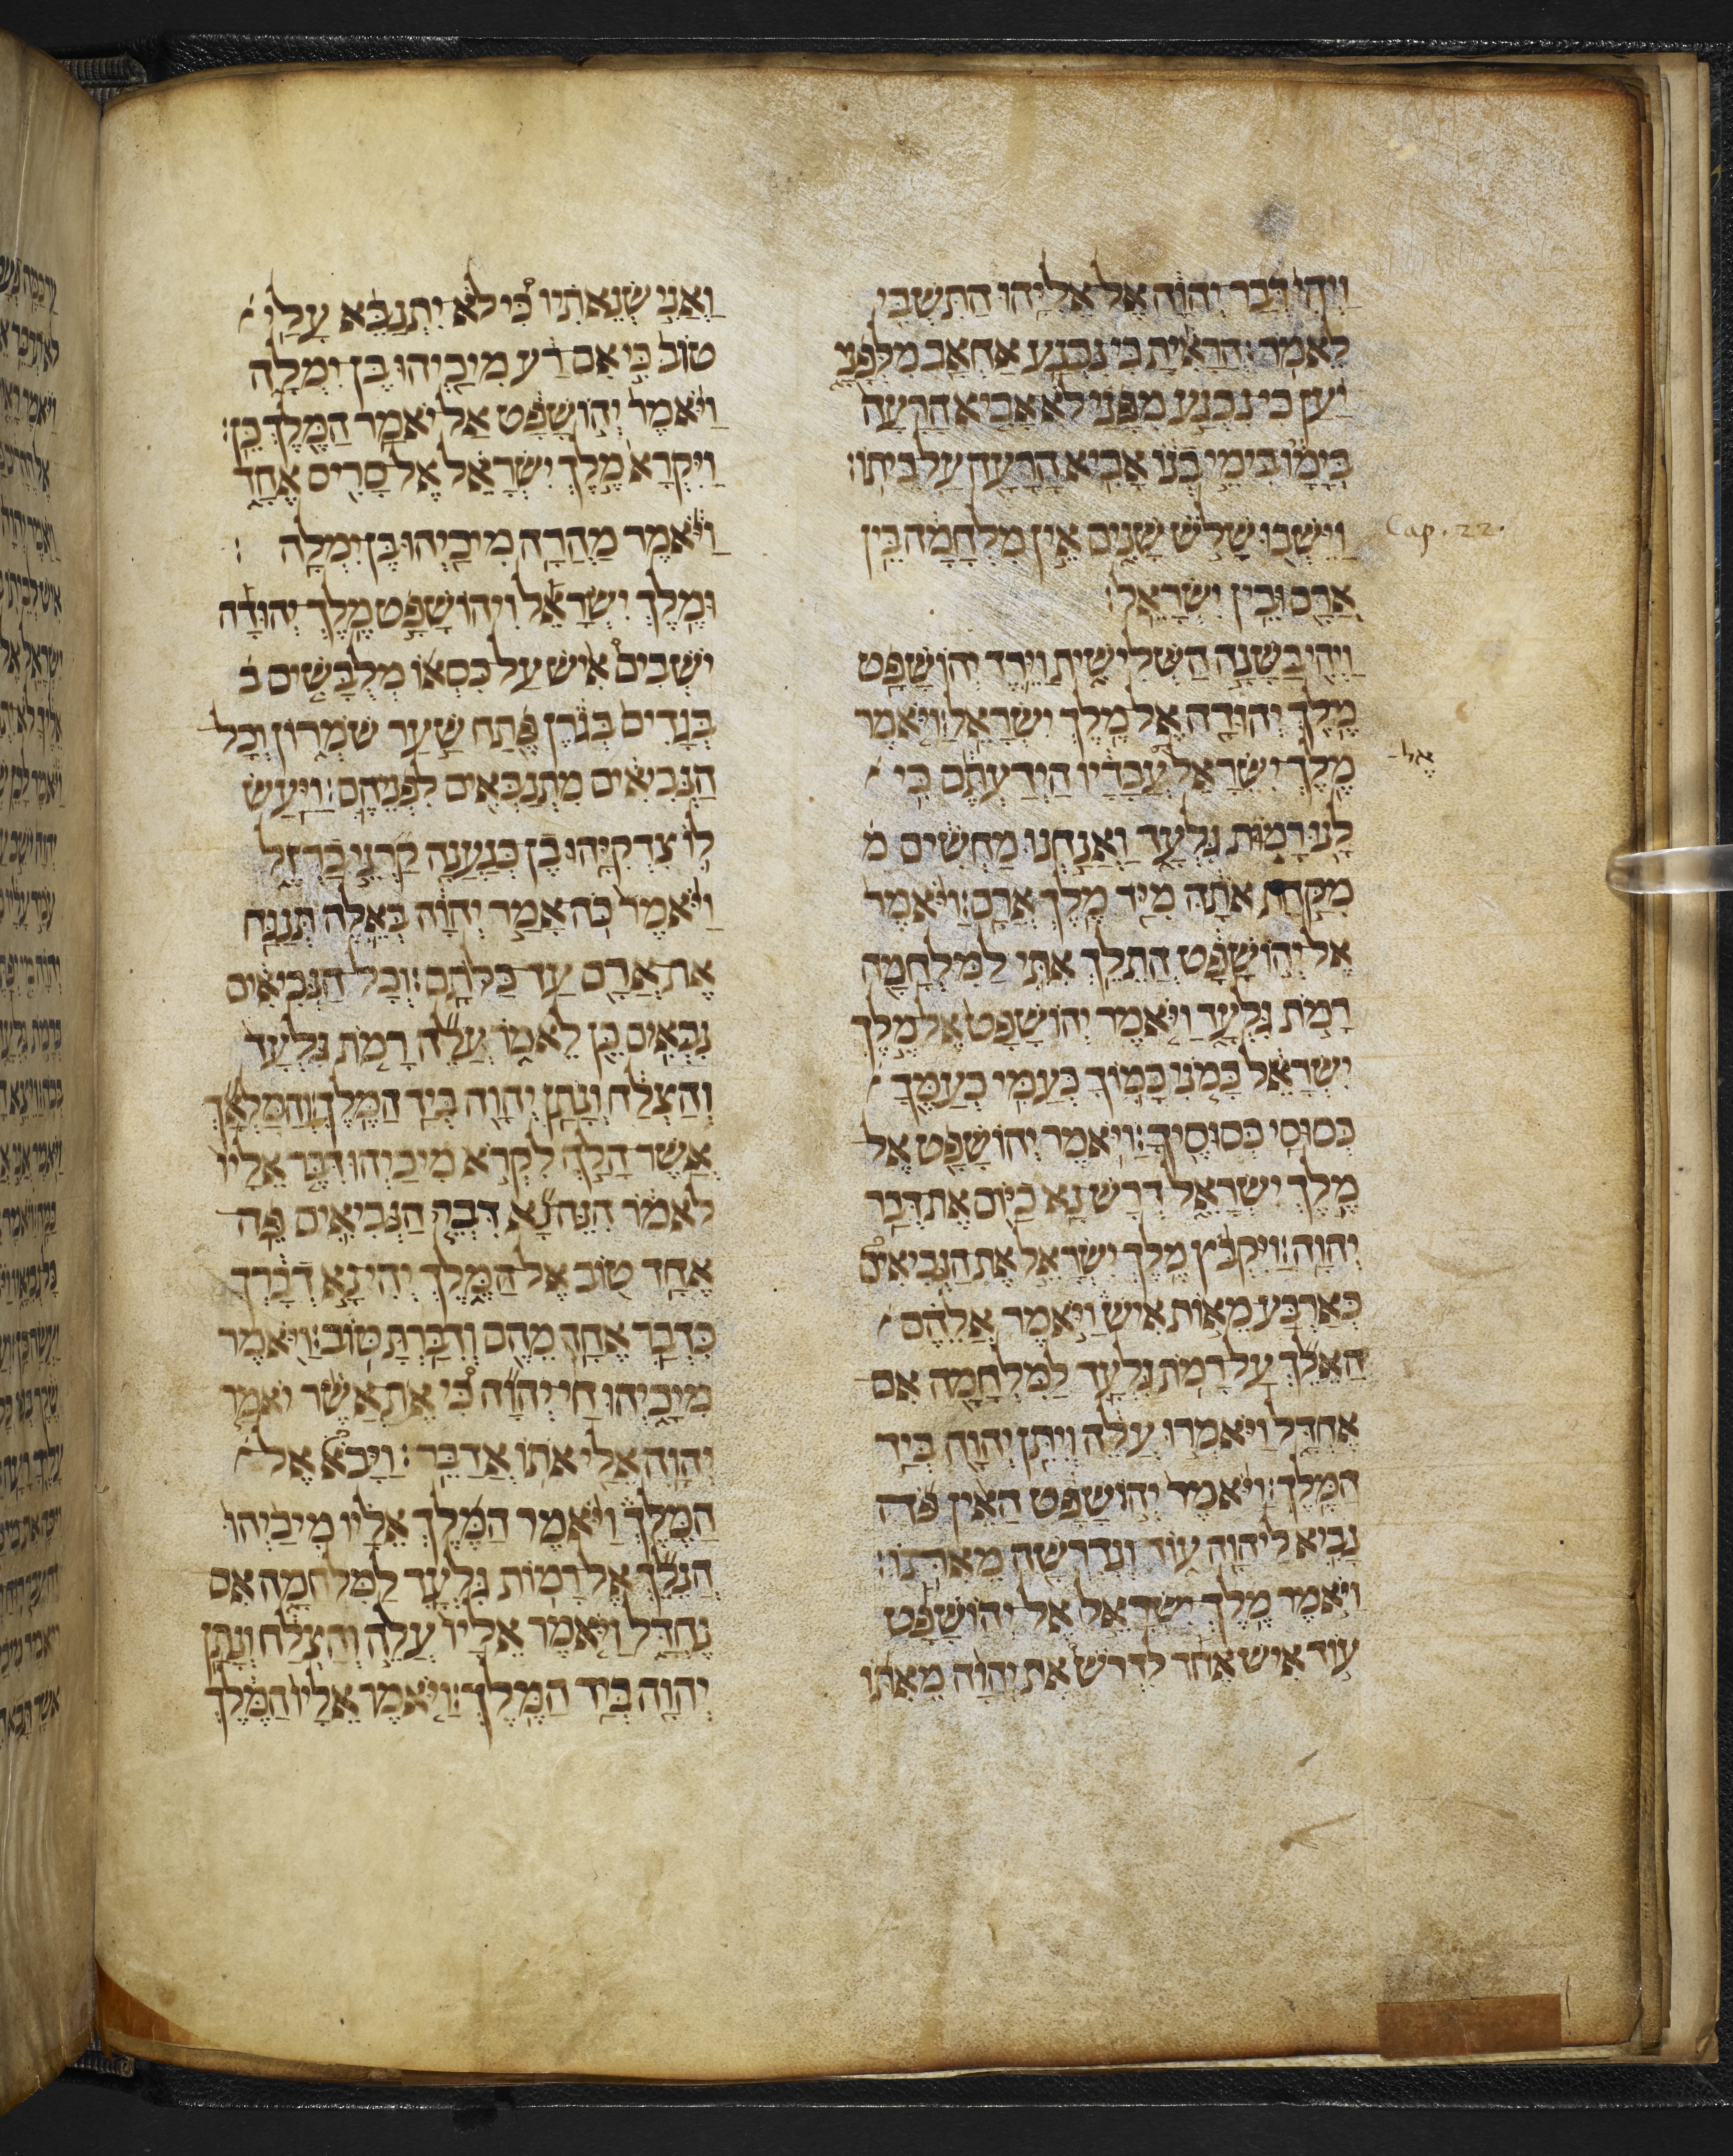 וַיְהִי דְּבַר יְהוָה אֶל אֵלִיָּהוּ הַתִּשְׁבִּי
לֵאמֹר׃ הֲרָאִיתָ כִּי נִכְנַע אַחְאָב מִלְּפָנָי
יַעַן כִּי נִכְנַע מִפָּנַי לֹא אָבִיא הָרָעָה
בְּיָמָו בִּימֵי בְנוֹ אָבִיא הָרָעָה עַל בֵּיתוֹ׃
Cap. 22.
וַיֵּשְׁבוּ שָׁלֹשׁ שָׁנִים אֵין מִלְחָמָה בֵּין
אֲרָם וּבֵין יִשְׂרָאֵל׃
וַיְהִי בַּשָּׁנָה הַשְּׁלִישִׁית וַיֵּרֶד יְהוֹשָׁפָט
מֶלֶךְ יְהוּדָה אֶל מֶלֶךְ יִשְׂרָאֵל׃ וַיֹּאמֶר
אֶל
מֶלֶךְ יִשְׂרָאֵל עֲבָדָיו הַיְדַעְתֶּם כִּי
לָנוּ רָמוֹת גִּלְעָד וַאֲנַחְנוּ מַחְשִׁים מ
מִקַּחַת אֹתָהּ מִיַּד מֶלֶךְ אֲרָם׃ וַיֹּאמֶר
אֶל יְהוֹשָׁפָט הֲתֵלֵךְ אִתִּי לַמִּלְחָמָה
רָמֹת גִּלְעָד וַיֹּאמֶר יְהוֹשָׁפָט אֶל מֶלֶךְ
יִשְׂרָאֵל כָּמֹנִי כָמוֹךָ כְּעַמִּי כְעַמֶּךָ
כְּסוּסַי כְּסוּסֶיךָ׃ וַיֹּאמֶר יְהוֹשָׁפָט אֶל
מֶלֶךְ יִשְׂרָאֵל דְּרָשׁ נָא כַיּוֹם אֶת דְּבַר
יְהוָה׃ וַיִּקְבֹּץ מֶלֶךְ יִשְׂרָאֵל אֶת הַנְּבִיאִים
כְּאַרְבַּע מֵאוֹת אִישׁ וַיֹּאמֶר אֲלֵהֶם
הַאֵלֵךְ עַל רָמֹת גִּלְעָד לַמִּלְחָמָה אִם
אֶחְדָּל וַיֹּאמְרוּ עֲלֵה וְיִתֵּן יְהוָה בְּיַד
הַמֶּלֶךְ׃ וַיֹּאמֶר יְהוֹשָׁפָט הַאֵין פֹּה
נָבִיא לַיהוָה עוֹד וְנִדְרְשָׁה מֵאֹתוֹ׃
וַיֹּאמֶר מֶלֶךְ יִשְׂרָאֵל אֶל יְהוֹשָׁפָט
עוֹד אִישׁ אֶחָד לִדְרֹשׁ אֶת יְהוָה מֵאֹתוֹ
וַאֲנִי שְׂנֵאתִיו כִּי לֹא יִתְנַבֵּא עָלַי
טוֹב כִּי אִם רָע מִיכָיְהוּ בֶּן יִמְלָה
וַיֹּאמֶר יְהוֹשָׁפָט אַל יֹאמַר הַמֶּלֶךְ כֵּן׃
וַיִּקְרָא מֶלֶךְ יִשְׂרָאֵל אֶל סָרִיס אֶחָד
וַיֹּאמֶר מַהֲרָה מִיכָיְהוּ בֶּן יִמְלָה׃
וּמֶלֶךְ יִשְׂרָאֵל וִיהוֹשָׁפָט מֶלֶךְ יְהוּדָה
יֹשְׁבִים אִישׁ עַל כִּסְאוֹ מְלֻבָּשִׁים ב
בְּגָדִים בְּגֹרֶן פֶּתַח שַׁעַר שֹׁמְרוֹן וְכָל
הַנְּבִיאִים מִתְנַבְּאִים לִפְנֵיהֶם׃ וַיַּעַשׂ
לוֹ צִדְקִיָּהוּ בֶן כְּנַעֲנָה קַרְנֵי בַרְזֶל
וַיֹּאמֶר כֹּה אָמַר יְהוָה בְּאֵלֶּה תְּנַגַּח
אֶת אֲרָם עַד כַּלֹּתָם׃ וְכָל הַנְּבִיאִים
נִבְּאִים כֵּן לֵאמֹר עֲלֵה רָמֹת גִּלְעָד
וְהַצְלַח וְנָתַן יְהוָה בְּיַד הַמֶּלֶךְ׃ וְהַמַּלְאָךְ
אֲשֶׁר הָלַךְ לִקְרֹא מִיכָיְהוּ דִּבֶּר אֵלָיו
לֵאמֹר הִנֵּה נָא דִּבְרֵי הַנְּבִיאִים פֶּה
אֶחָד טוֹב אֶל הַמֶּלֶךְ יְהִי נָא דְבָרְךָ
כִּדְבַר אַחַד מֵהֶם וְדִבַּרְתָּ טּוֹב׃ וַיֹּאמֶר
מִיכָיְהוּ חַי יְהוָה כִּי אֶת אֲשֶׁר יֹאמַר
יְהוָה אֵלַי אֹתוֹ אֲדַבֵּר׃ וַיָּבֹא אֶל
הַמֶּלֶךְ וַיֹּאמֶר הַמֶּלֶךְ אֵלָיו מִיכָיְהוּ
הֲנֵלֵךְ אֶל רָמוֹת גִּלְעָד לַמִּלְחָמָה אִם
נֶחְדָּל וַיֹּאמֶר אֵלָיו עֲלֵה וְהַצְלַח וְנָתַן
יְהוָה בְּיַד הַמֶּלֶךְ׃ וַיֹּאמֶר אֵלָיו הַמֶּלֶךְ